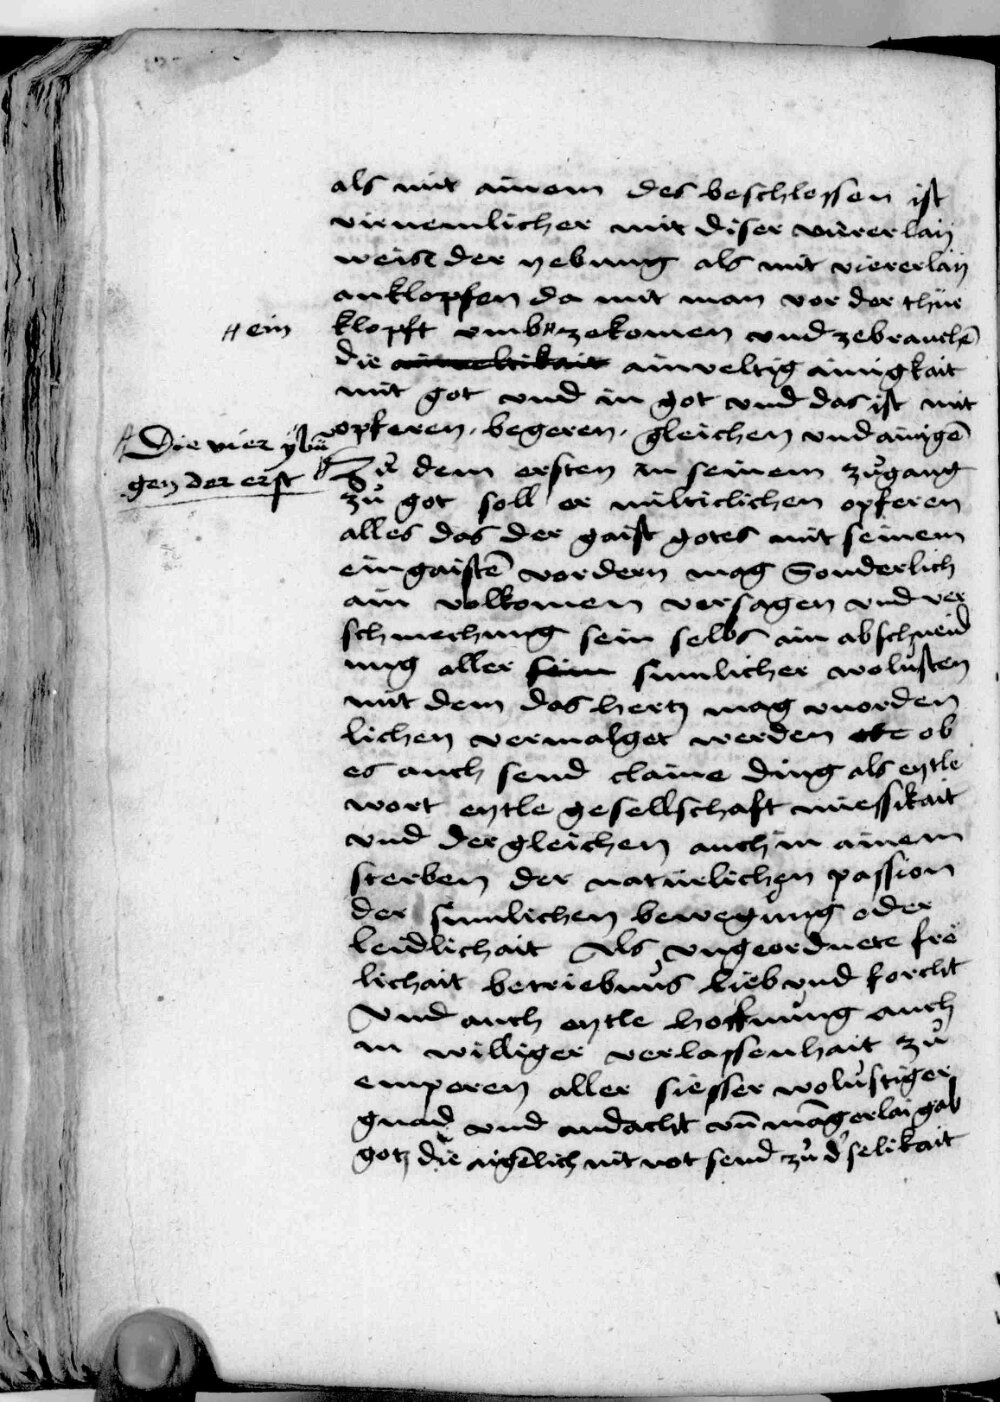 als mit ainem des beschlossen ist
virnemlicher mit diser viererlaÿ
weise der yebung als mit viererlaÿ
anklopfen da mit man vor der thür
⌗ ein
klopft vmb ⌗ zekomen vnd zebrauchē
die ainveltikait ainveltig ainigkait
mit got vnd in got vnd das ist mit
opferen · begeren · gleichen vnd ainigē
Die vier ÿbū
gen der erst
Zů dem ersten in seinem zůgang
zů got soll er milticlichen opferen
alles das der gaist gotes mit seinem
eingaistē vordern mag Sonderlich
ain volkomen versagen vnd ver
schmechung sein selbs ain abschneid
ung aller sein sinnlicher wolüsten
mit dem das hertz mag vnorden
lichen vermalget werden ob
es auch send claine ding als eytle
wort eytle gesellschaft miessikait
vnd der gleichen auch in ainem
sterben der natürlichen passion
der sinnlichen bewegüng oder
leidlichait Als vngeordnete frö
lichait betriebnüs lieb vnd forcht
Vnd auch eytle hoffnüng auch
in williger verlassenhait zů
emperen aller siesser wolüstiger
gnad vnd andacht vn̄ māgerlai gab
gotz die aigēlich nit not send zů d' selikait